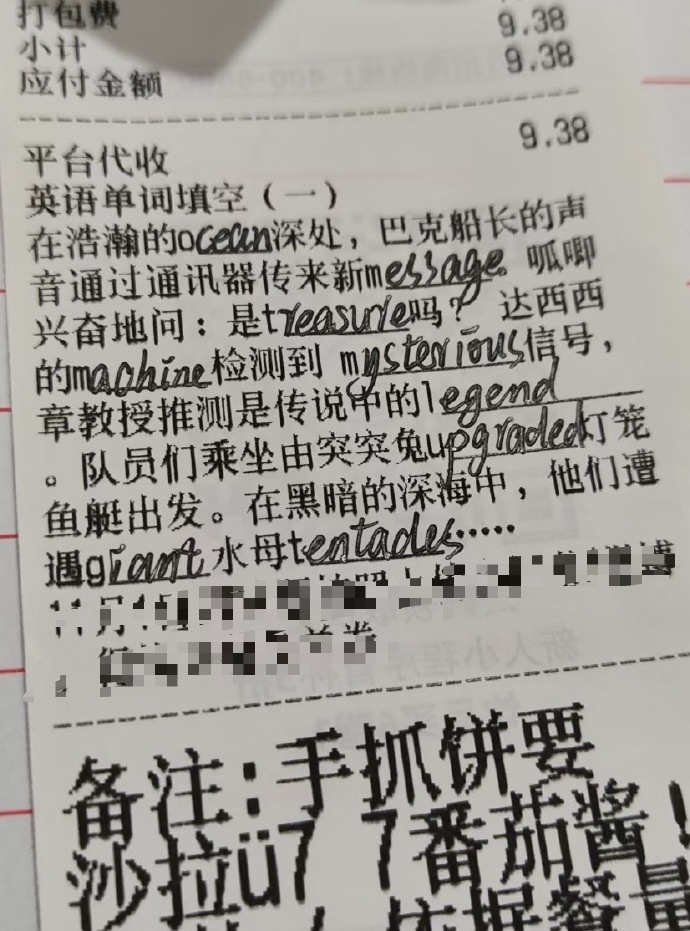 打包费 9.38
小计 9.38
应付金额
平台代收 9.38
英语单词填空（一）
在浩瀚的ocean深处，巴克船长的声
音通过通讯器传来新message。呱唧
兴奋地问：是treasure吗？ 达西西
的machine检测到 mysterious信号，
章教授推测是传说中的legend
。队员们乘坐由突突兔upgraded灯笼
鱼艇出发。在黑暗的深海中，他们遭
遇giant水母tentades……
备注:手抓饼要
沙拉ü7 7番茄酱！